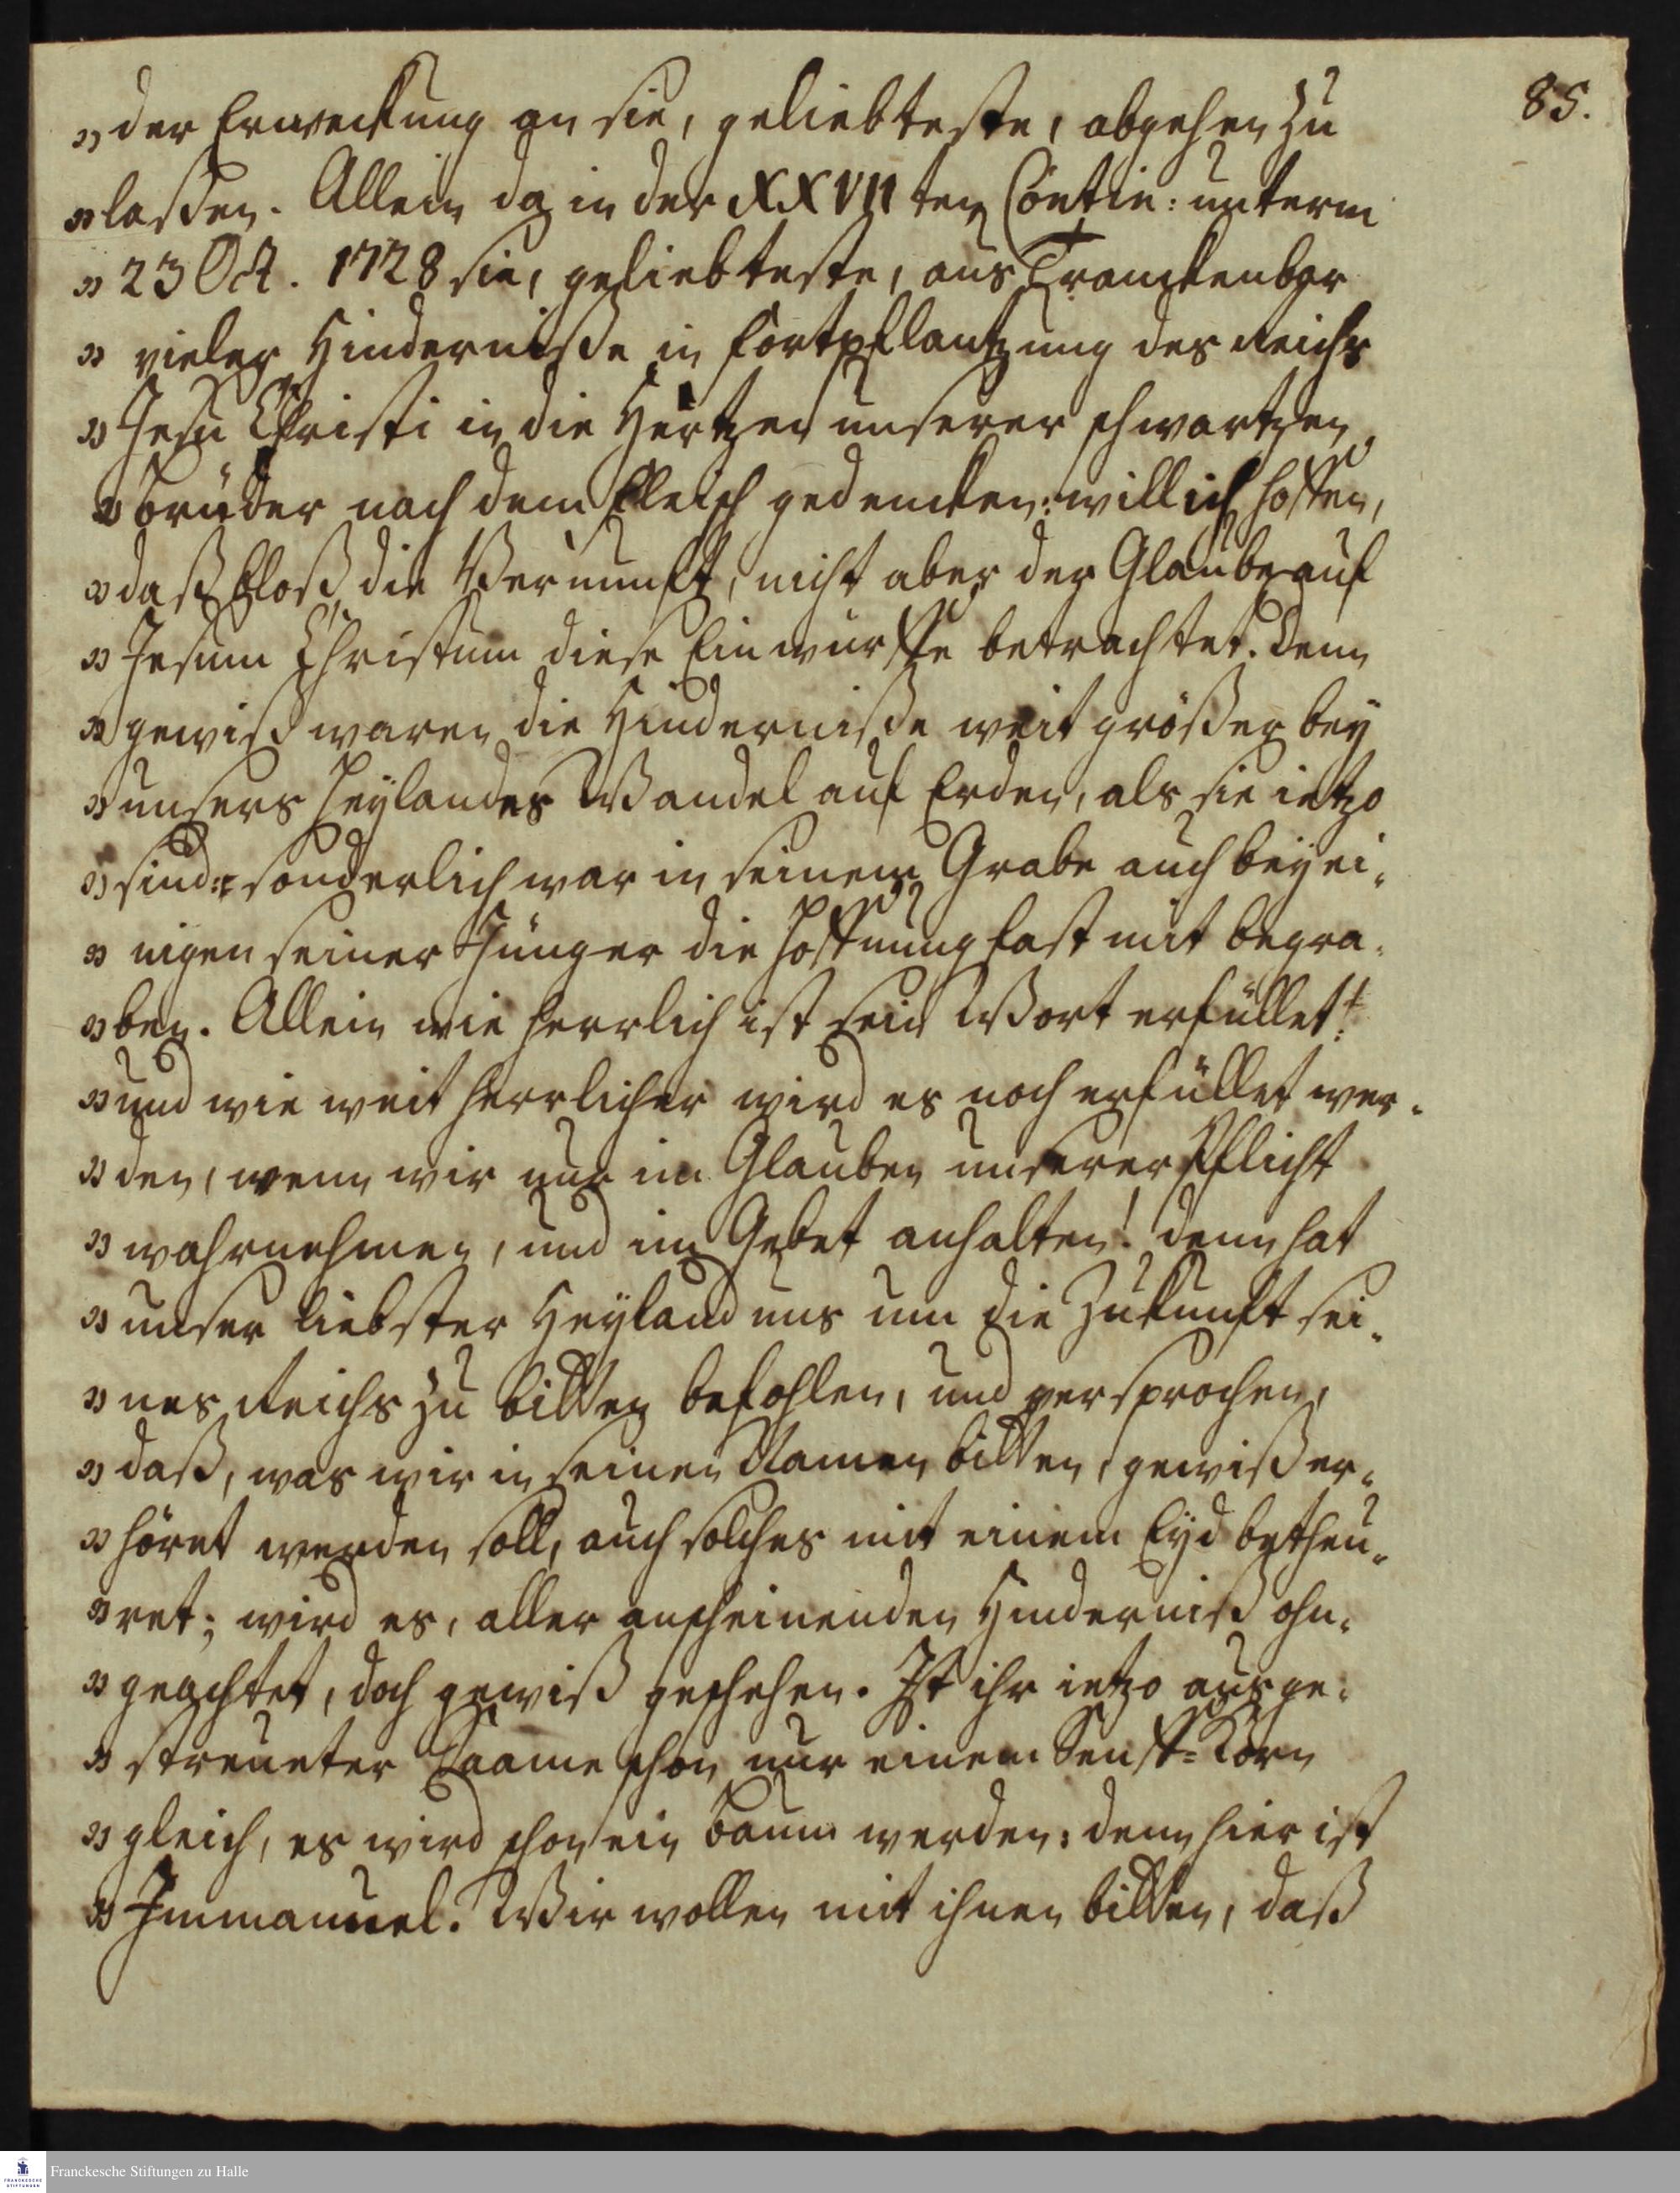 85.
„der Erweckung an sie, geliebteste, abgehen zu
„laßen. Allein da in der XXVIIten Contin: unterm
„23 Oct. 1728 sie, geliebteste, aus Tranckenbar
„vieler Hinderniße in Fortpflantzung des Reichs
„Jesu Christi in die Hertzen unserer schwartzen
„Brüder nach dem Fleisch gedencken: will ich hoffen,
„daß bloß die Vernunft, nicht aber der Glaube auf
„Jesum Christum diese Einwürffe betrachtet. Denn
„gewiß waren die Hinderniße weit größer bey
„unsers Heylandes Wandel auf Erden, als sie ietzo
„sind: sonderlich war in seinem Grabe auch bey ei-
„nigen seiner Jünger die Hoffnung fast mit begra-
„ben. Allein wie herrlich ist sein Wort erfüllet!
„und wie weit herrlicher wird es noch erfüllet wer-
„den, wenn wir nur im Glauben unserer Pflicht
„wahrnehmen, und im Gebet anhalten! denn hat
„unser liebster Heyland uns um die Zukunft sei-
„nes Reichs zu bitten befohlen, und versprochen,
„daß, was wir in seinen Namen bitten, gewiß er-
„höret werden soll, auch solches mit einem Eyd betheu-
„ret; wird es, aller anscheinenden Hinderniß ohn-
„geachtet, doch gewiß geschehen. Ist ihr ietzo ausge-
„streueter Saame schon nur einem Senff-Korn
„gleich, es wird schon ein Baum werden: denn hier ist
„Immanuel. Wir wollen mit ihnen bitten, daß
Franckesche Stiftungen zu Halle
FRANCKESCHE
STIFTUNGEN